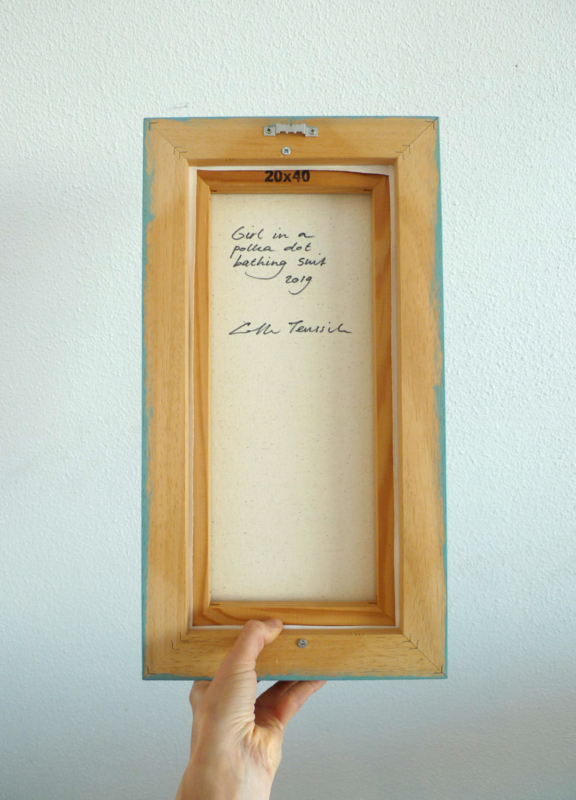 20x40
Girl in a
polka dot
bathing suit
2019